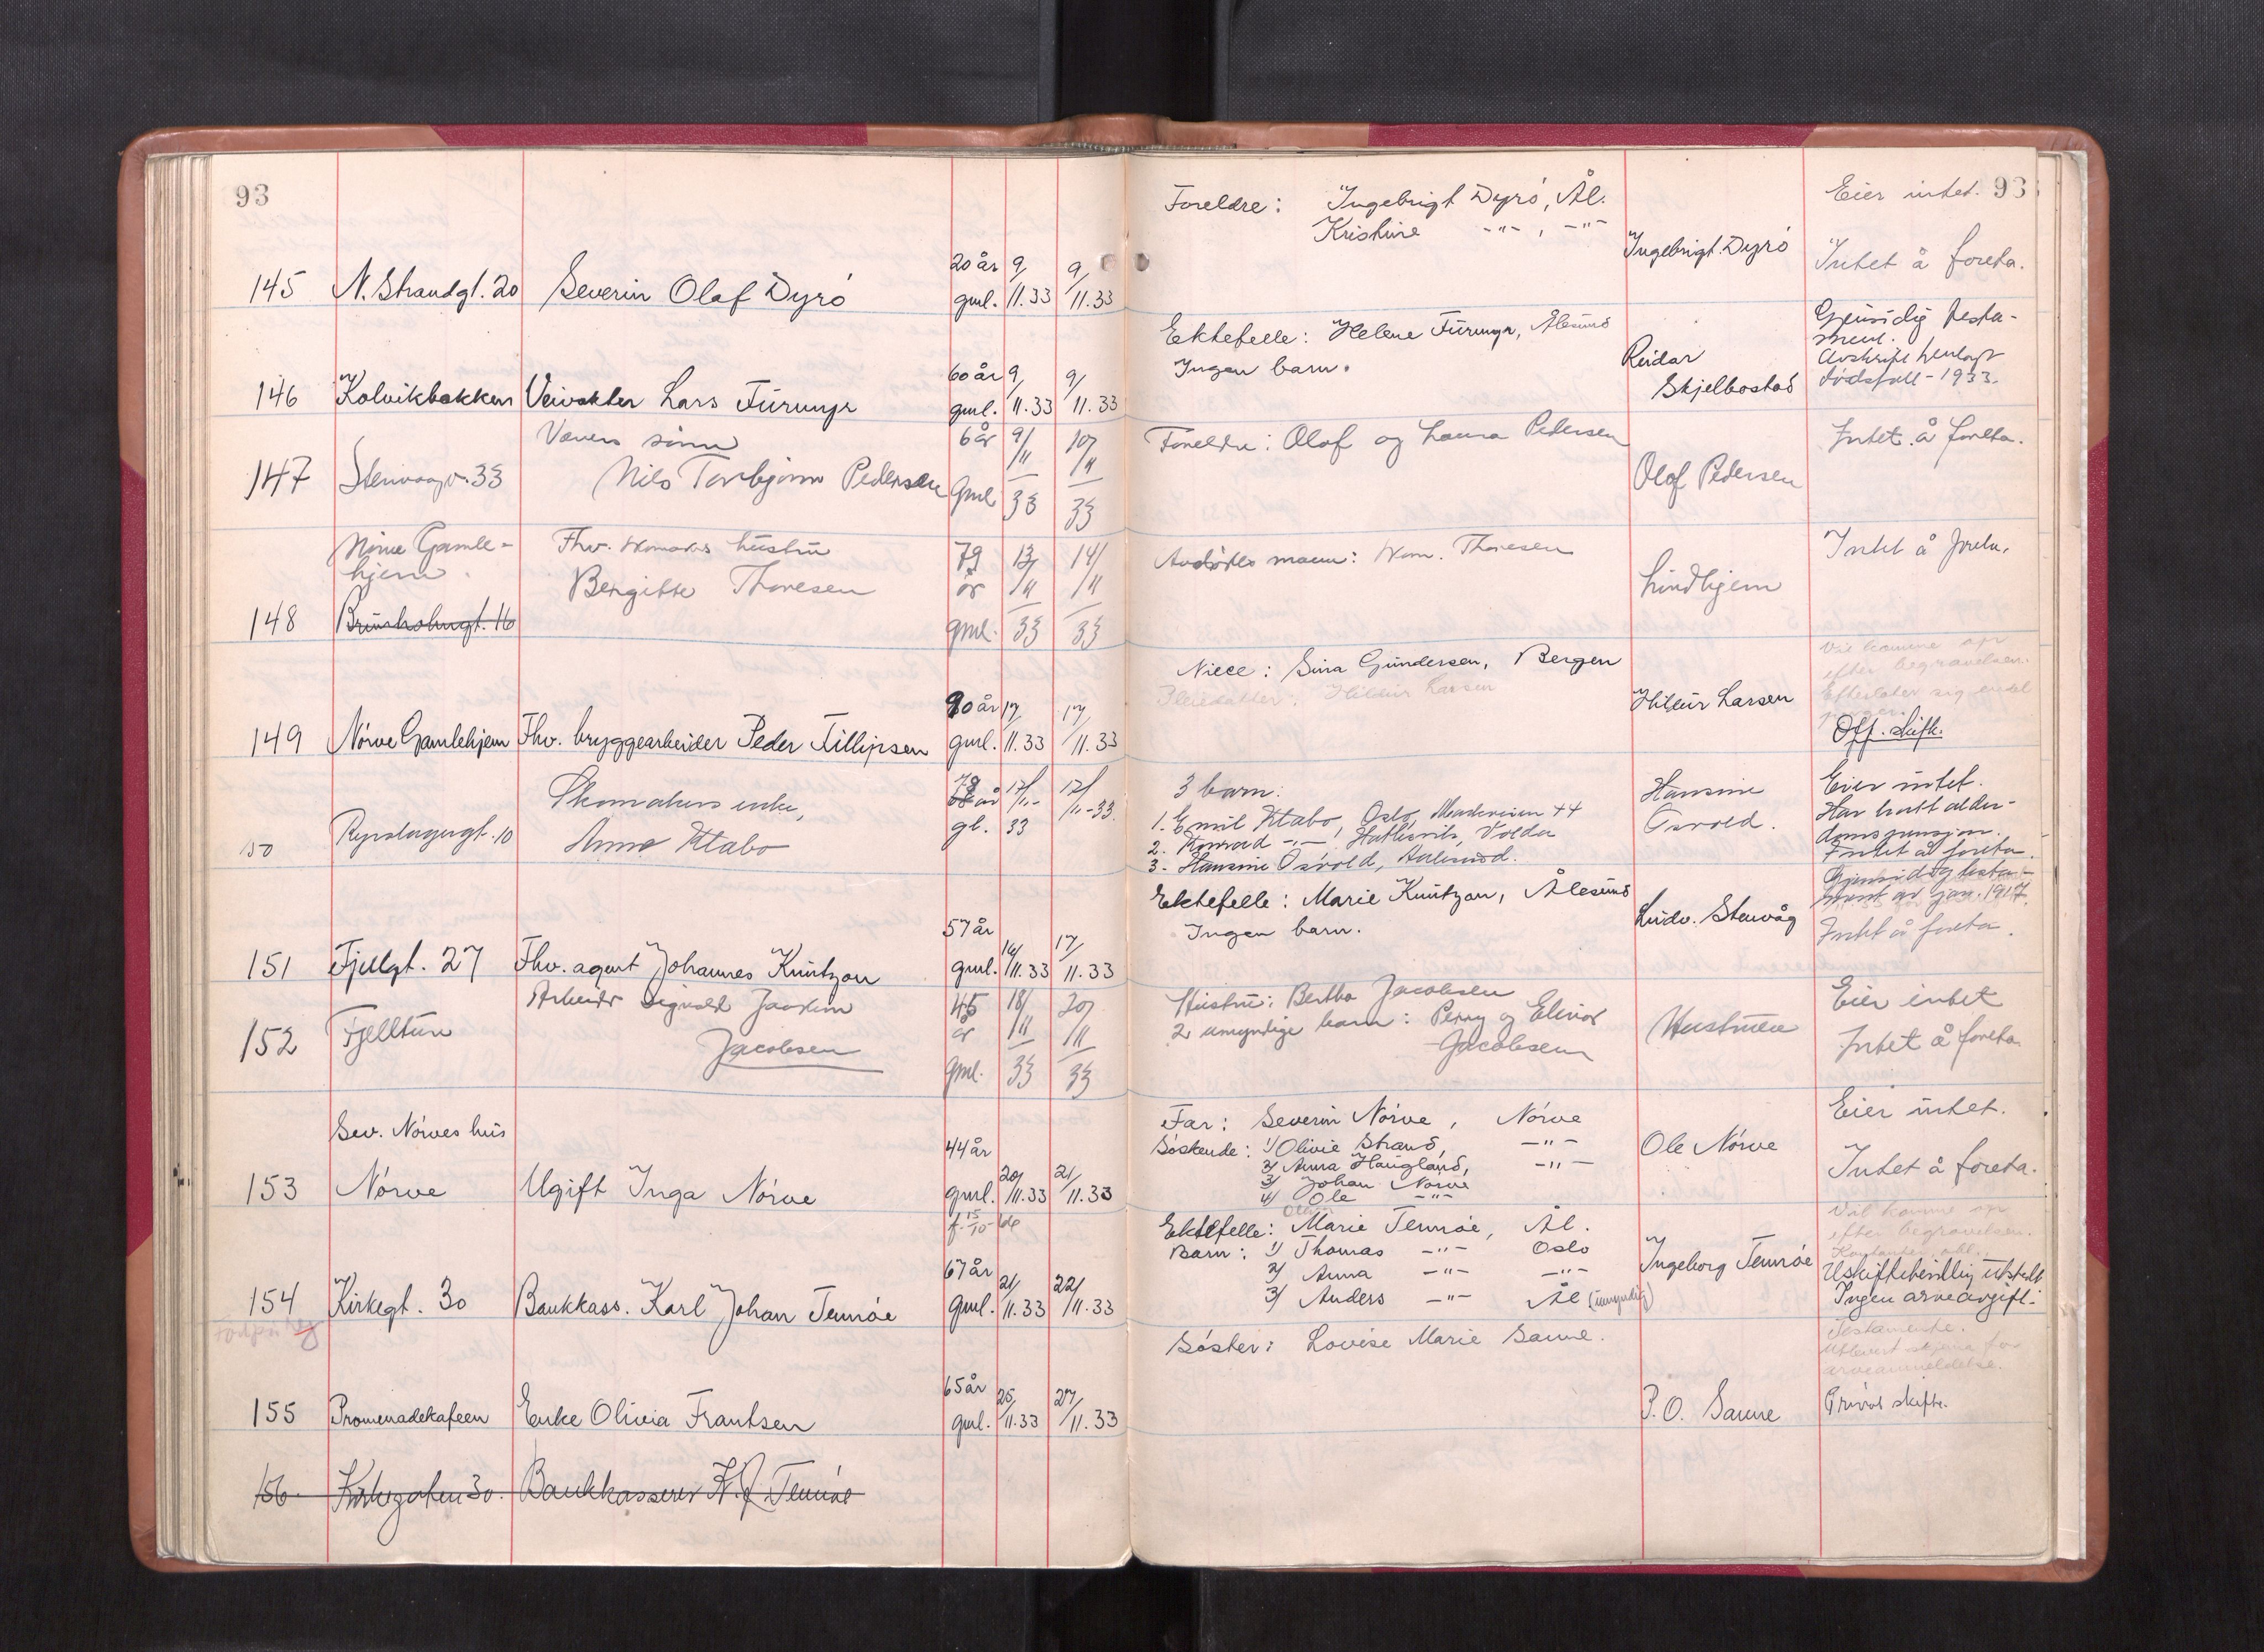 93
93
145 N. Strandgt. 20 Severin Olaf Dyrö 20 år gml. 9/11.33 9/11.33
Foreldre: Ingebrigt Dyrö, Ål.
Kristine -"-, -"-
Ingebrigt Dyrö
Eier intet.
Intet å foreta.
146 Kolvikbakken Veivokter Lars Furmyr 60 år gml. 9/11.33 9/11.33
Ektefelle: Helene Furmyr, Ålesund
Ingen barn.
Reidar
Skjelbostad
Gjensidig testa-
ment.
Avskrift henlagt
dödsfall - 1933.
147 Stenvaagv. 33
sönn
Nils Torbjörn Pedersen 6 år gml 9/11 33 10/11 33
Foreldre: Olaf og Laura Pedersen
Olaf Pedersen
Intet å foreta.
148 Nörve Gamle-
hjem.
Brunholmgt. 16
Fhv. skomakers hustru
Bergitte Thoresen 79 år gml. 13/11 33 14/11 33
Avdödes mann: skom. Thoresen
Lindhjem
Intet å foreta.
149 Nörve Gamlehjem Fhv. bryggearbeider Peder Fillipsen 90 år gml. 17/11.33 17/11.33
Niece: Sina Gundersen, Bergen
Pleiedatter: Hildur Larsen
Hildur Larsen
Vil komme op
efter begravelsen.
Efterlater sig endel
penger.
Off. skifte.
50 10
Skomakers enke,
Anna 78 år gl. 17/11- 33 17/11-33.
3 barn:
1. Emil Oslo,
2. Konrad -"-, Volda
3. Hansine Osvold, Aalesund.
Hansine
Osvold.
Eier intet.
Har hatt alder-
domspensjon.
Intet å foreta.
151 Fjellgt. 27 Fhv. agent Johannes Knutzon 57 år gml. 16/11.33 17/11.33
Ektefelle: Marie Knutzon, Ålesund
Ingen barn.
Ludv. Stenvåg
Gjensidig testa-
ment av jan. 1917.
Intet å foreta.
152 Fjelltun Arbeider Sigvald Joakim
Jacobsen 45 år gml. 18/11 33 20/11 33
Hustru: Bertha Jacobsen
2 umyndige barn: Perry og Elinor
Jacobsen
Hustruen
Eier intet
Intet å foreta.
Sev. Nörves hus
153 Nörve Ugift Inga Nörve 44 år gml. 20/11.33 21/11.33
Far: Severin Nörve, Nörve
Söskende: 1/ Olivie Strand, -"-
2/ Anna Haugland, -"-
3/ Johan Nörve
4/ Ole -"-
Ole Nörve
Eier intet.
Intet å foreta.
154 Kirkegt. 30 Bankkass. Karl Johan Tennöe f. 15/10-66 67 år gml. 21/11.33 22/11.33
Ektefelle: Marie Tennöe, Ål.
Barn: 1/ Thomas -"- Oslo
2/ Anna -"- -"-
3/ Anders -"- Ål (umyndig)
Ingeborg Tennöe
Vil komme op
efter begravelsen.
Uskiftebevilling utstedt
Ingen arveavgift.
155 Promenadekafeen Enke Olivia Frantsen 65 år gml. 25/11.33 27/11.33
Söster: Lovise Marie Sanne.
P.O. Sanne
Testamente.
Utlevert skjema for
arveanmeldelse.
Privat skifte.
156 Kirkegaten 30. Bankkasserer K.J. Tennöe